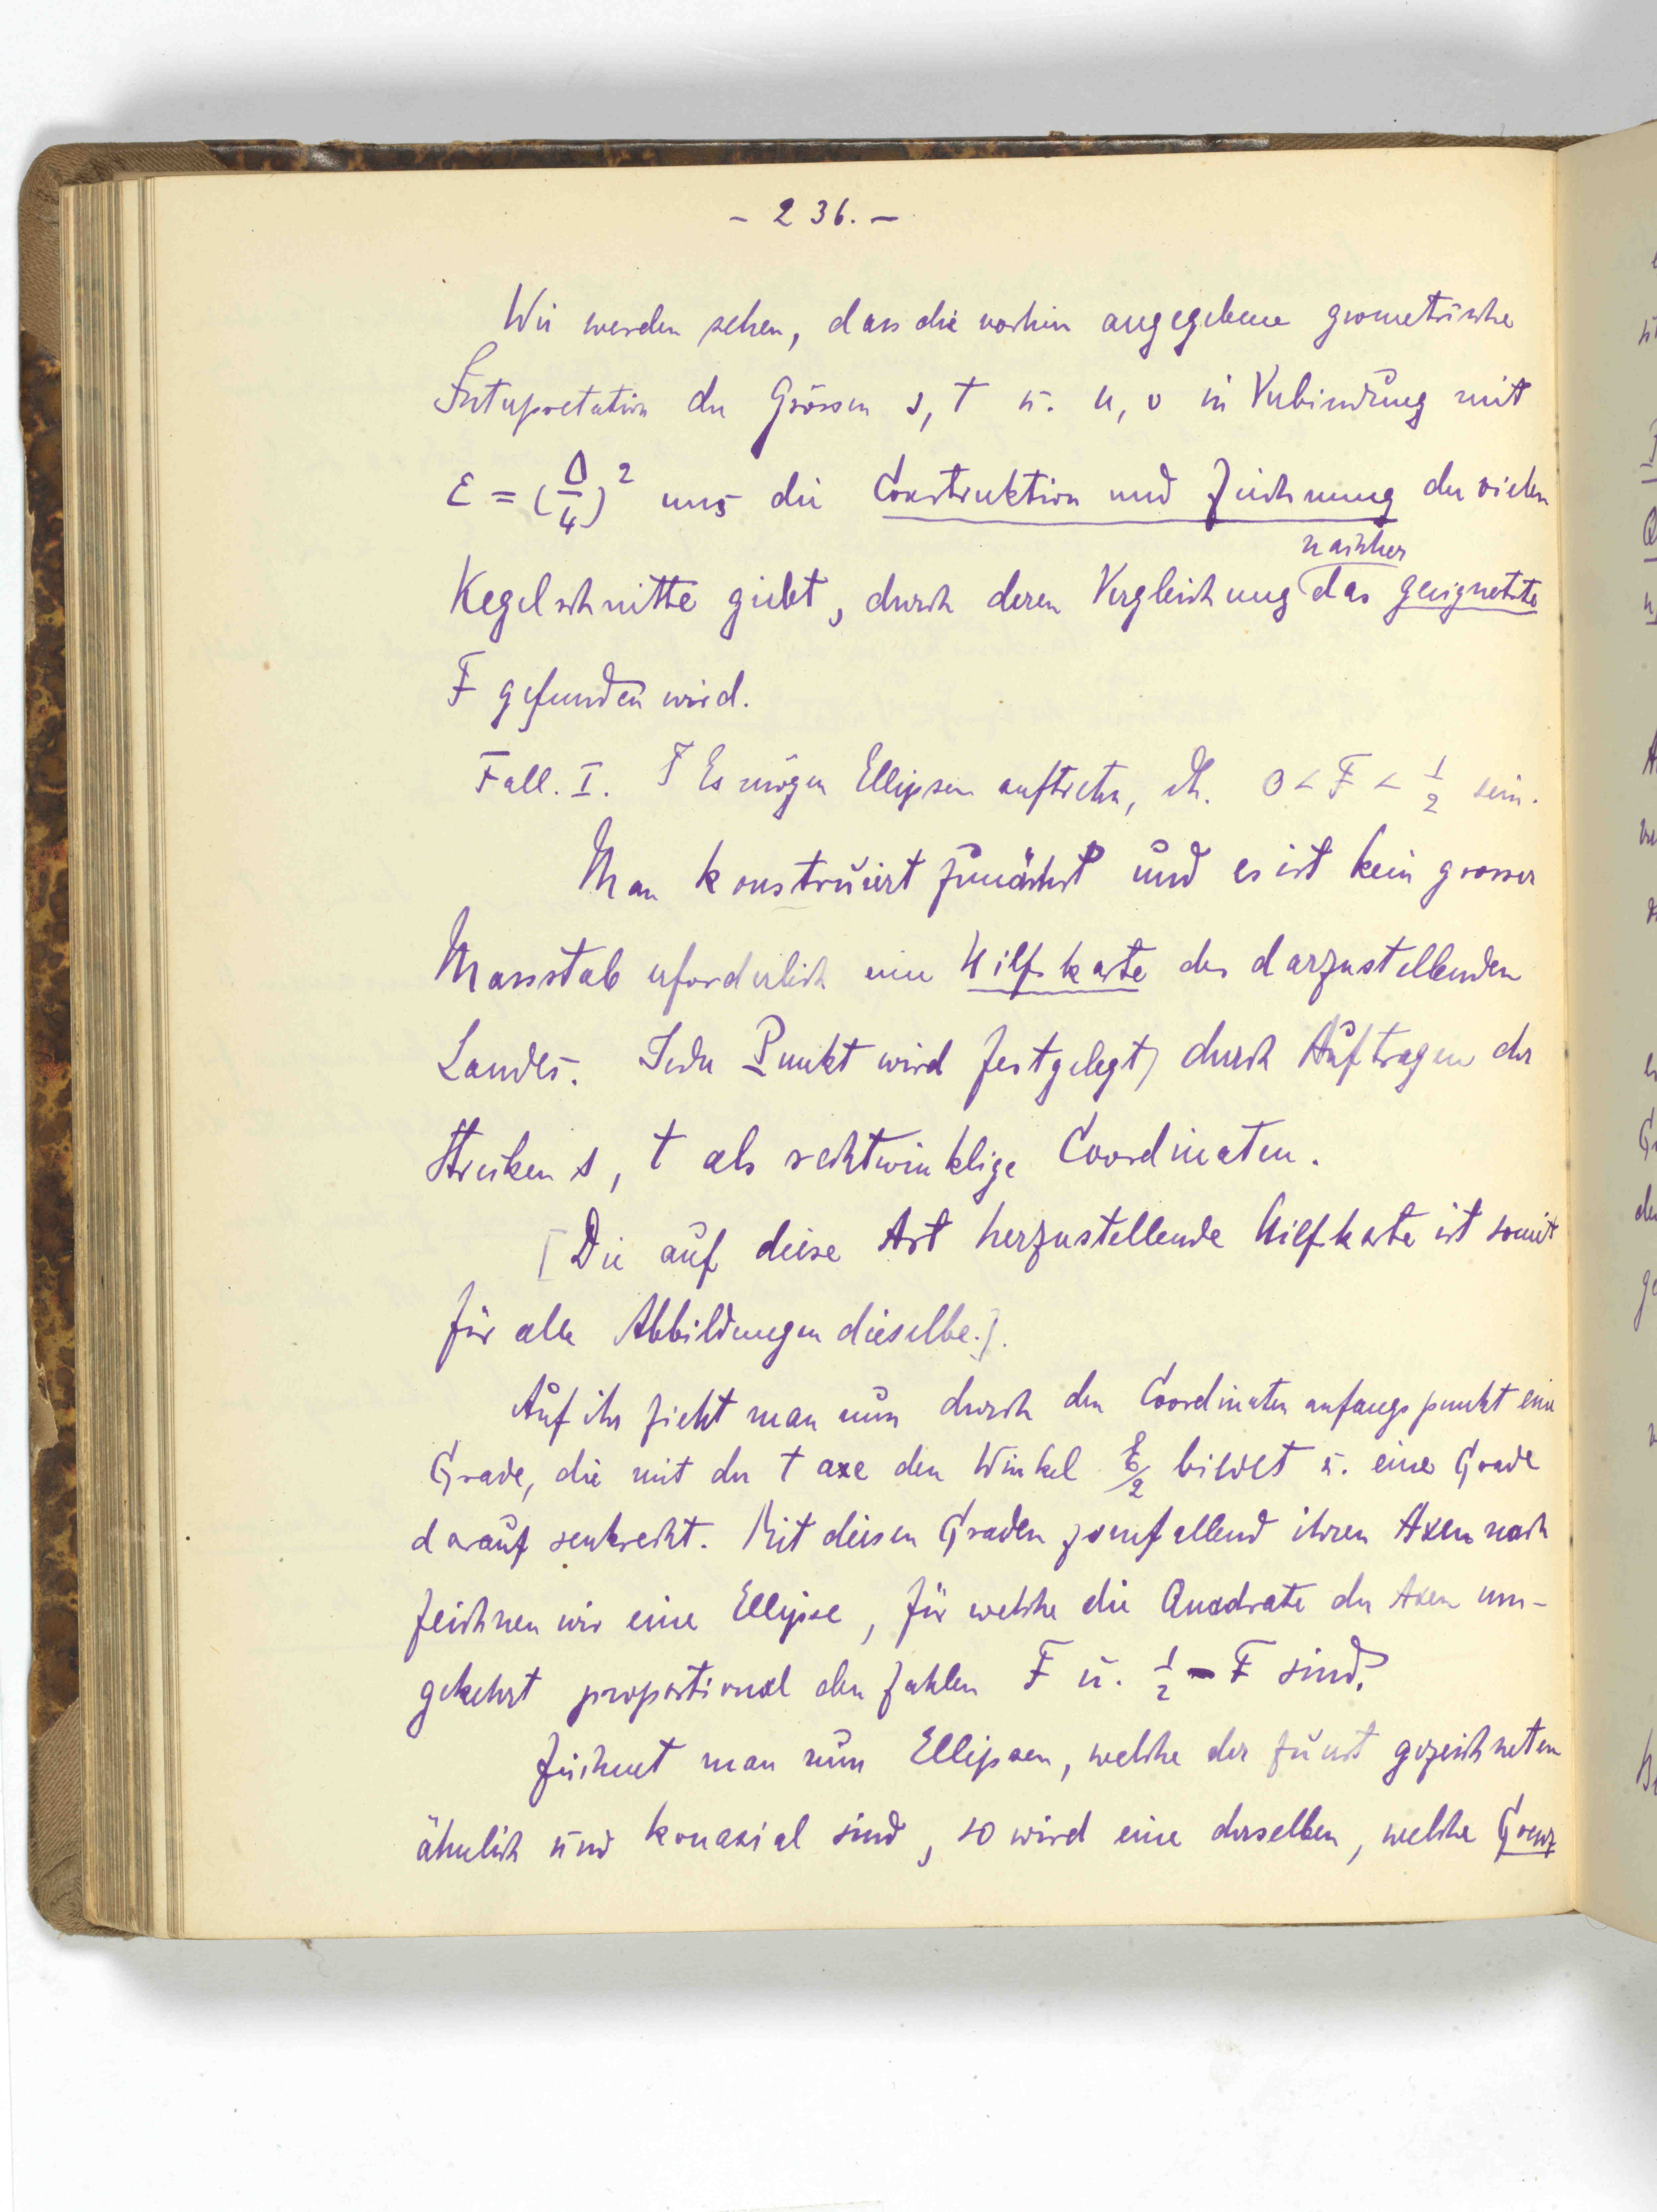 - 236. -
Wir werden sehen, dass die vorhin angegebene geometrische
Interpretation der Grössen s, t u. u, v in Verbindung mit
ε = (Δ/4)² uns die Construktion und Zeichnung der vielen
rascher
Kegelschnitte giebt, durch deren Vergleichung das geeignetste
F gefunden wird.
Fall. I. Es mögen Ellipsen auftreten, dh. 0 < F < 1/2 sein.
Man konstruiert zunächst und es ist kein grosser
Massstab erforderlich eine Hilfskarte des darzustellenden
Landes. Jeder Punkt wird festgelegt durch Auftragen der
Strecken s, t als rechtwinklige Coordinaten.
[Die auf diese Art herzustellende Hilfkarte ist somit
für alle Abbildungen dieselbe.].
Auf ihr zieht man nun durch den Coordinatenanfangspunkt eine
Grade, die mit der t axe den Winkel /2 bildet u. eine Grade
darauf senkrecht. Mit diesen Graden zusmfallend ihren Axen nach
zeichnen wir eine Ellipse, für welche die Quadrate der Axen um-
gekehrt proportional den Zahlen F u. 1/2 - F sind.
Zeichnet man nun Ellipsen, welche der zuerst gezeichneten
ähnlich und konaxial sind, so wird eine derselben, welche Grenz